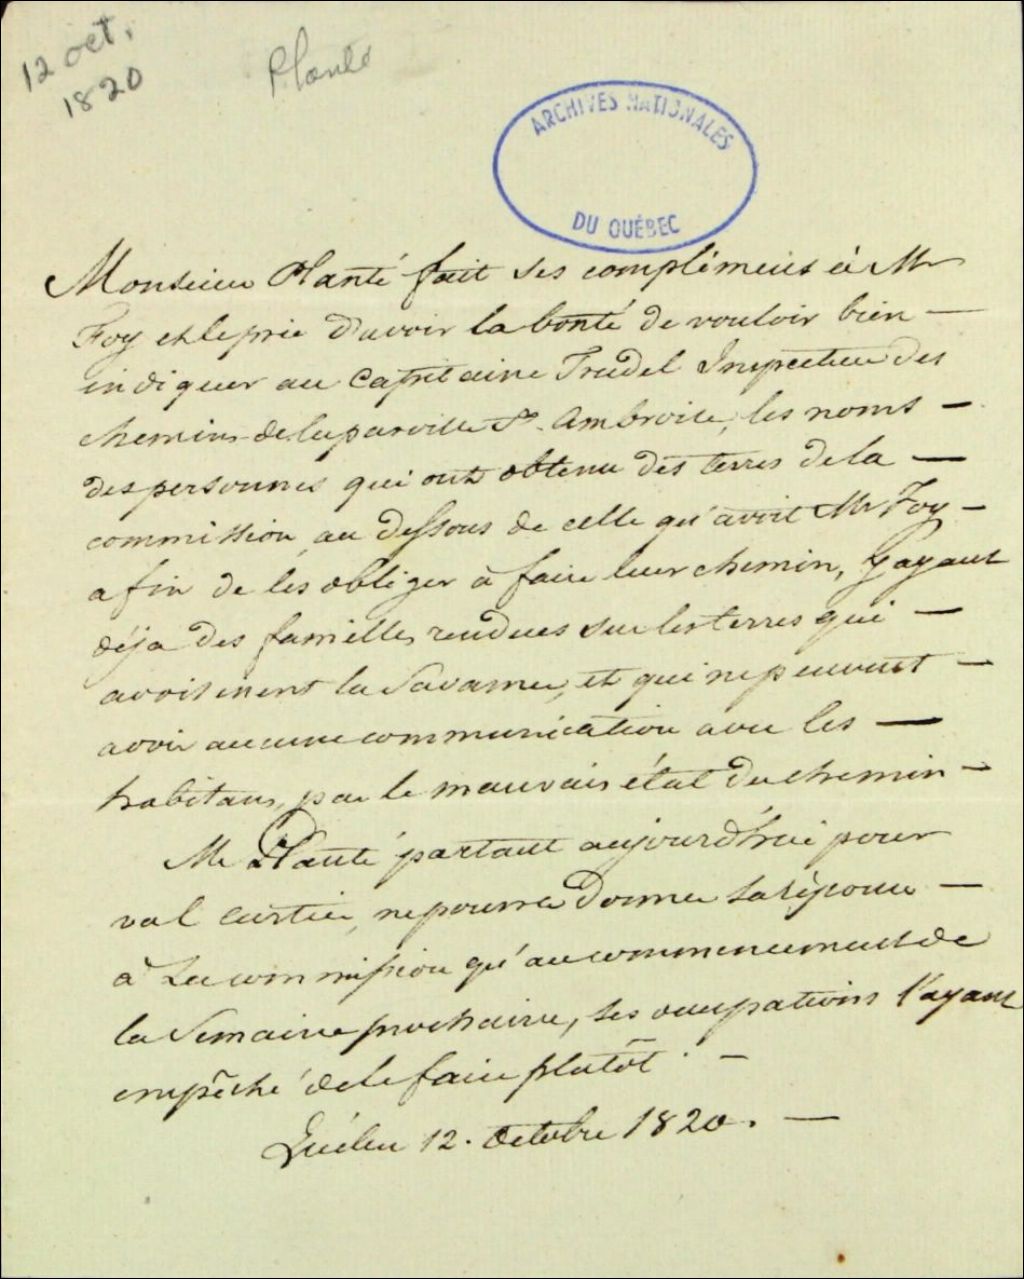 12 oct.
1820
Planté
ARCHIVES NATIONALES
DU QUÉBEC
Monsieur Planté fait ses complimens à Mr
Foy et le prie d'avoir la bonté de vouloir bien —
indiquer au Capitaine Trudel Inspecteur des
chemins de la paroisse St. Ambroise, les noms —
des personnes qui ont obtenu des terres de la —
commission au dessous de celle qu'avoit Mr Foy —
afin de les obliger à faire leur chemin, y ayant
déja des familles rendues sur les terres qui —
avoisinent la Savanne, et qui ne peuvent —
avoir aucune communication avec les —
habitans, par le mauvais état du chemin —
Mr Planté partant aujourd'hui pour
val cartier, ne pourra donner sa réponse —
à la commission qu'au commencement de
la semaine prochaine, ses occupations l'ayant
empêché de le faire plutôt. —
Québec 12. Octobre 1820. —